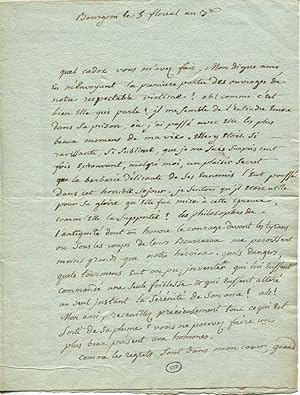 Bourgoin le 5 floréal an 3e
quel cadeau vous m'avez fait, Mon digne ami
En m'envoyant la premiere partie des ouvrages de
notre respectable victime! ah! comme c'est
bien elle qui parle! il me semble de l'entendre encore
dans sa prison, où j'ai passé avec elle les plus
beaux momens de ma vie. Elle y etoit si
ravissante, si sublime, que je me suis surpris cent
fois éprouvant, malgré moi, un plaisir secret
que la barbarie de ses Ennemis l'eut
dans cet horrible sejour, je sentois qu'il étoit utile
pour sa gloire qu'elle fut mise à cette epreuve
comme elle la supportée! les philosophes de
l'antiquité dont on honore le courage devant les tyrans
ou sous les coups de leurs Bourreaux me paroissent
moins grands que notre héroïne. quels dangers,
quels tourmens eut on pu inventer qui lui eussent
commandé une seule foiblesse ou qui eussent altéré
un seul instant la Serenité de son ame! ah!
Mon ami, recueillez precieusement tout ce qui est
sorti de sa plume! vous ne pouvez faire un
plus beau present aux hommes.
comme les regrets sont dans mon cœur, quand